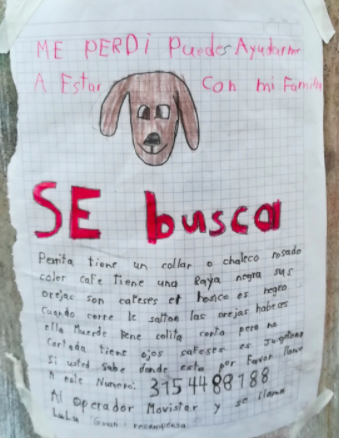 ME PERDI Puedes Ayudarme
A Estar Con mi Familia
SE busca
Perrita tiene un collar o chaleco rosado
color cafe tiene una Raya negra sus
orejas son cafeses el hosico es negro
cuando corre le saltan las orejas habeses
ella Muerde tiene colita corta pero no
Cortada tiene ojos cafeses es Juguetona
Si usted sabe donde esta por favor llame
A este Numero: 3154488188
Al operador Movistar y se llama
Gran recompensa